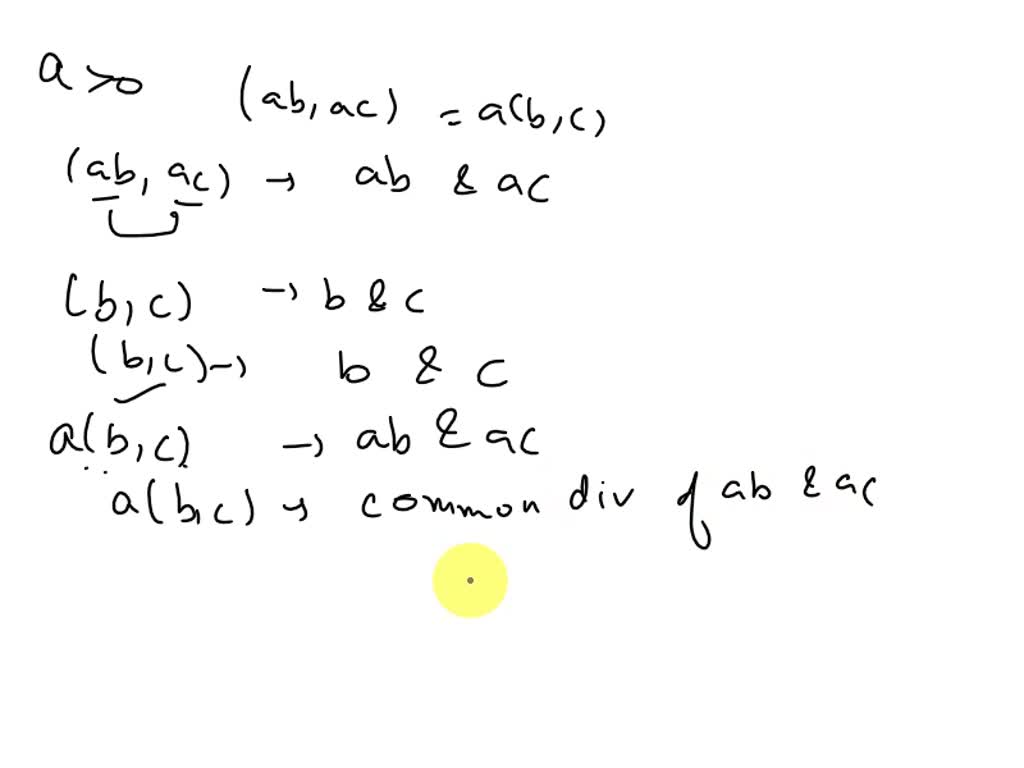 a>0 (ab, ac) = a(b, c)
(ab, ac) → ab & ac
(b, c) → b & c
(b, c) → b & c
a(b, c) → ab & ac
a(b, c) → common div of ab & ac